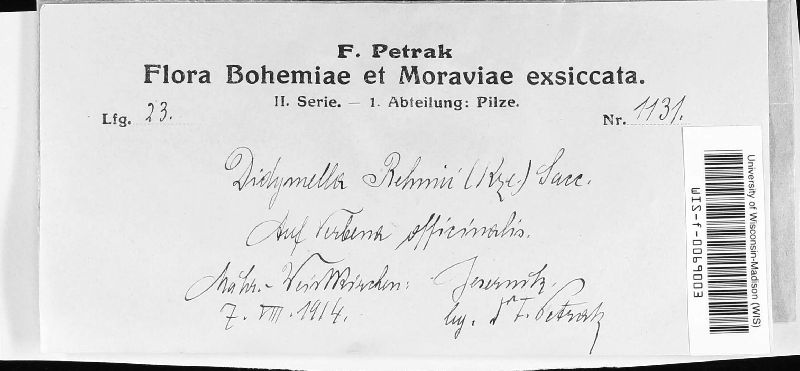 F. Petrak
Flora Bohemiae et Moraviae exsiccata.
II. Serie. — 1. Abteilung: Pilze.
Lfg. 23. Nr. 1131.
Didymella Rehmii (Kze.) Sacc.
Auf Verbena officinalis.
Mähr.-Weisskirchen: Jesernik.
7. VIII. 1914. lg. Dr F. Petrak
University of Wisconsin-Madison (WIS)
WIS-f-0069003